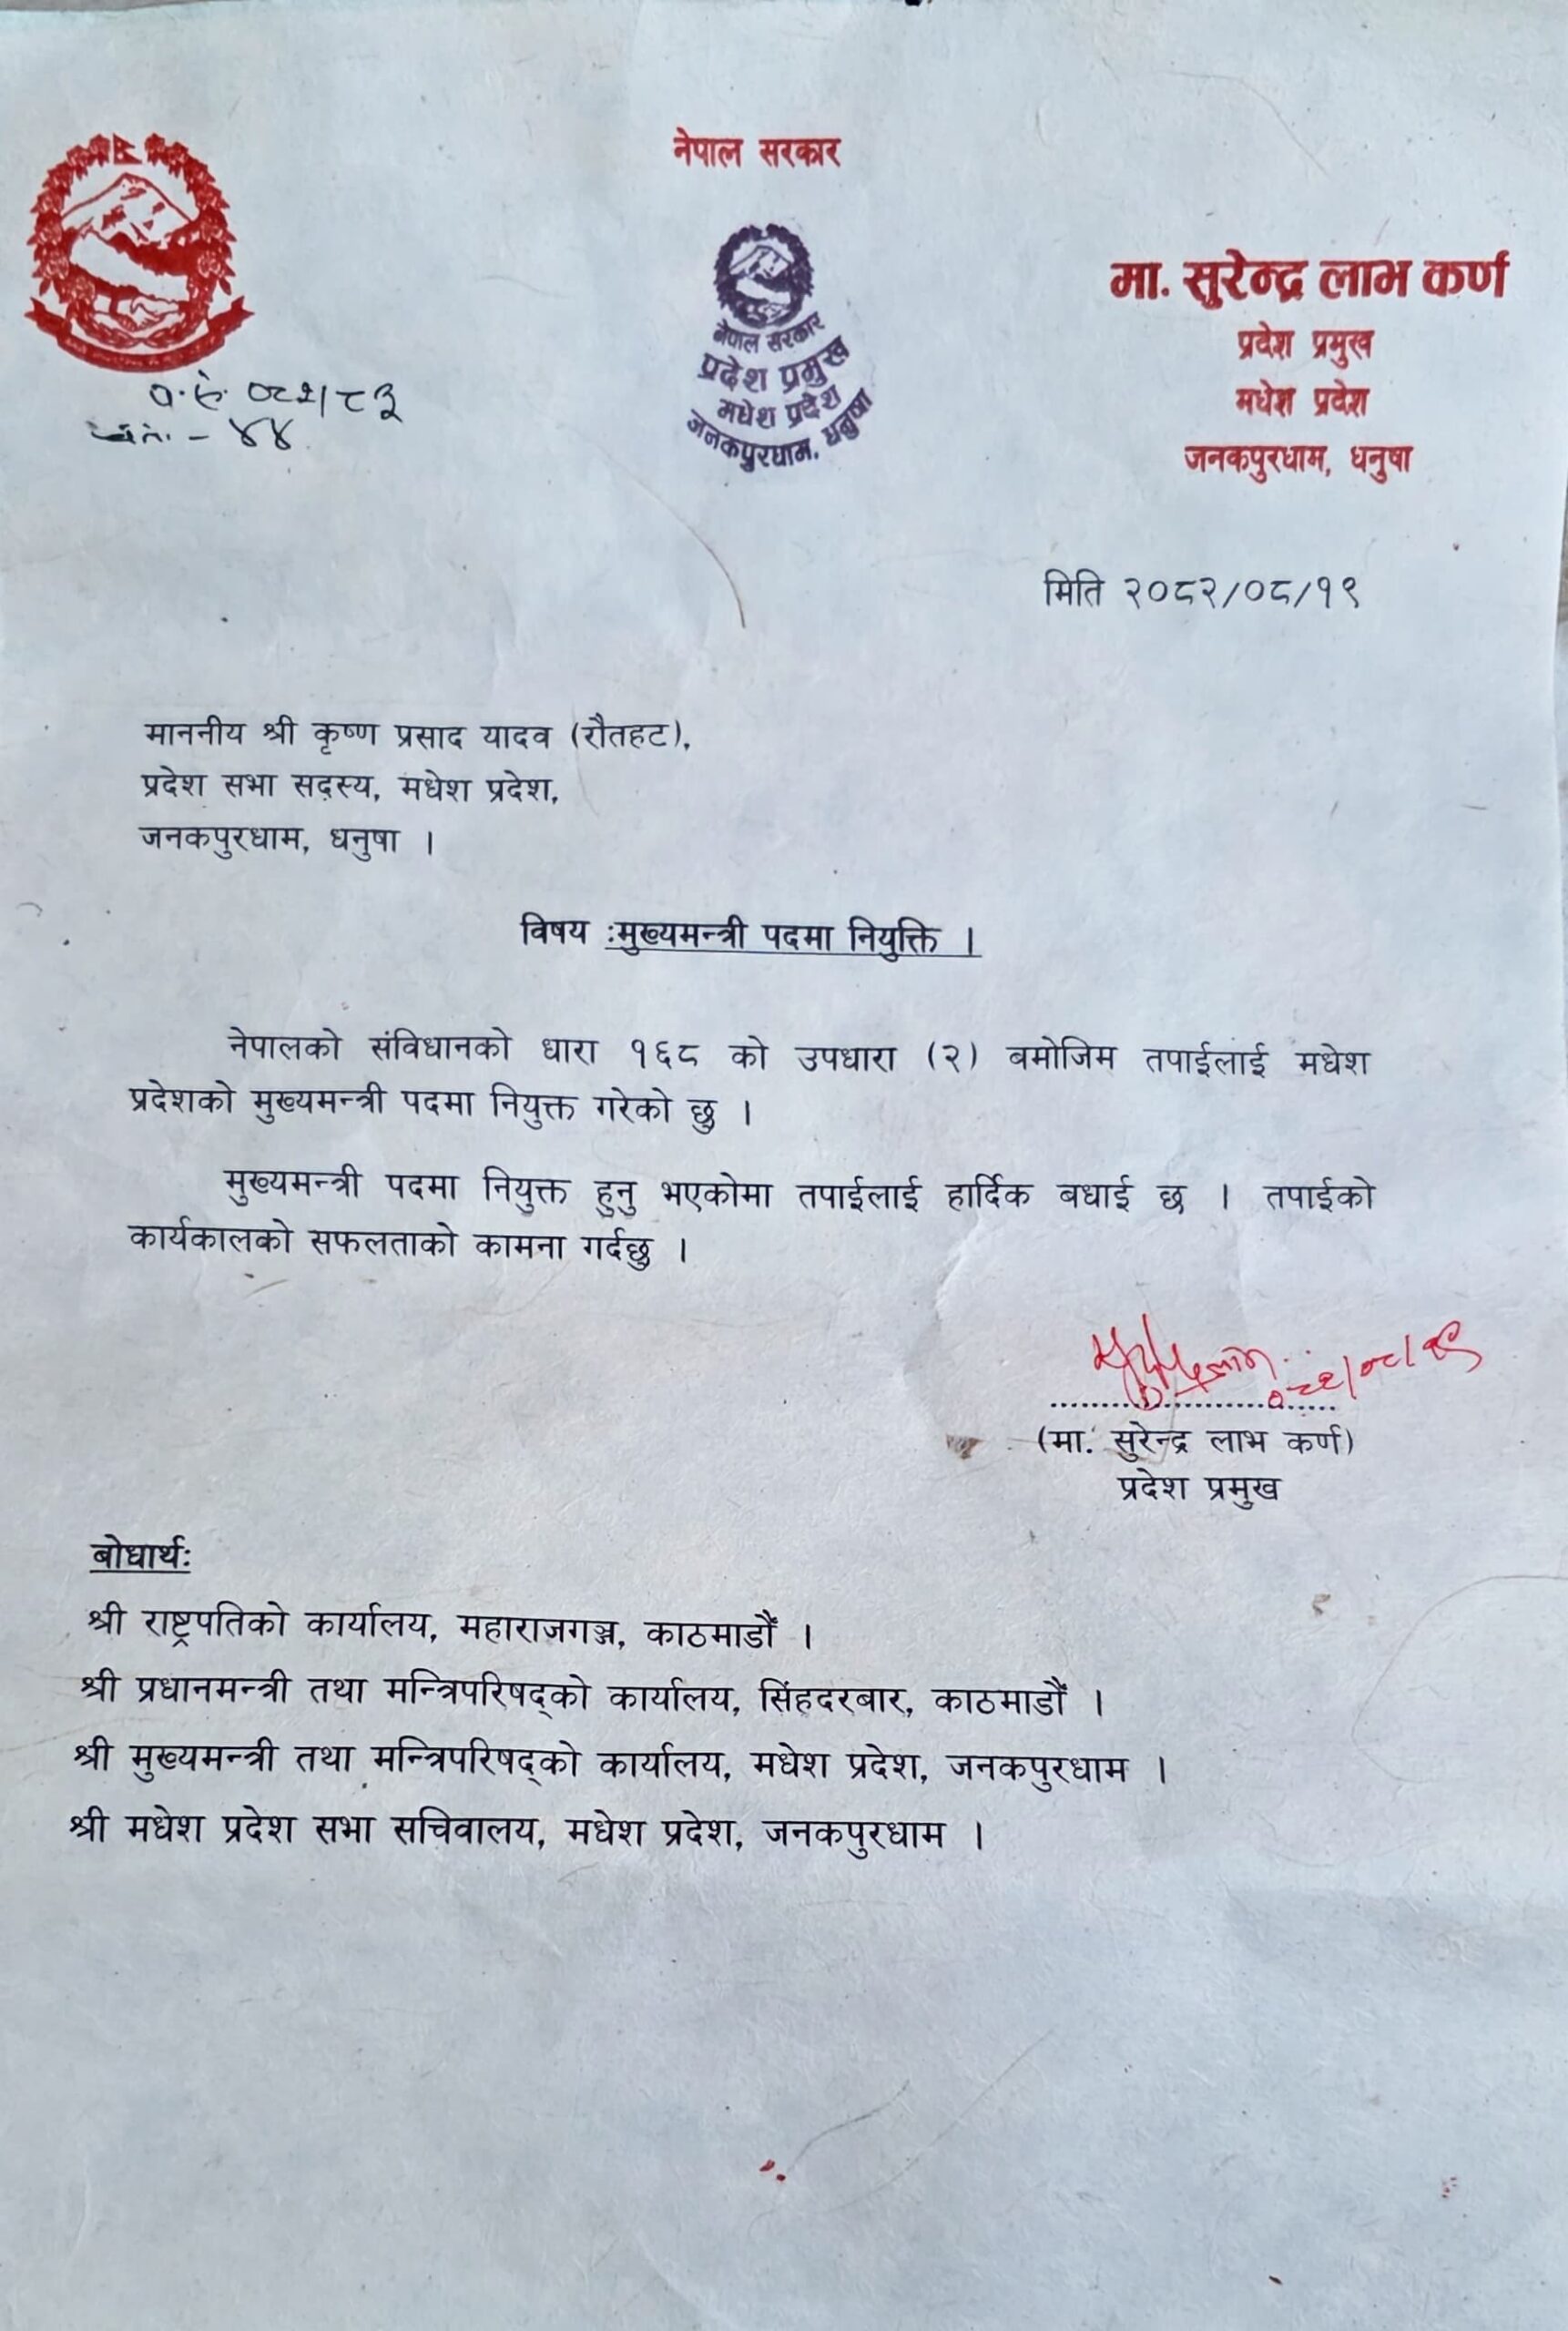 नेपाल सरकार
मा. सुरेन्द्र लाभ कर्ण
प्रदेश प्रमुख
मधेश प्रदेश
जनकपुरधाम, धनुषा
नेपाल सरकार
प्रदेश प्रमुख
मधेश प्रदेश
जनकपुरधाम, धनुषा
०८२/८३
च.नं. - ४४
मिति २०८२/०८/१९
माननीय श्री कृष्ण प्रसाद यादव (रौतहट),
प्रदेश सभा सदस्य, मधेश प्रदेश,
जनकपुरधाम, धनुषा ।
विषय :मुख्यमन्त्री पदमा नियुक्ति ।
नेपालको संविधानको धारा १६८ को उपधारा (२) बमोजिम तपाईलाई मधेश
प्रदेशको मुख्यमन्त्री पदमा नियुक्त गरेको छु ।
मुख्यमन्त्री पदमा नियुक्त हुनु भएकोमा तपाईलाई हार्दिक बधाई छ । तपाईको
कार्यकालको सफलताको कामना गर्दछु ।
०८२/०८/१९
(मा. सुरेन्द्र लाभ कर्ण)
प्रदेश प्रमुख
बोधार्थः
श्री राष्ट्रपतिको कार्यालय, महाराजगञ्ज, काठमाडौं ।
श्री प्रधानमन्त्री तथा मन्त्रिपरिषद्को कार्यालय, सिंहदरबार, काठमाडौं ।
श्री मुख्यमन्त्री तथा मन्त्रिपरिषद्को कार्यालय, मधेश प्रदेश, जनकपुरधाम ।
श्री मधेश प्रदेश सभा सचिवालय, मधेश प्रदेश, जनकपुरधाम ।